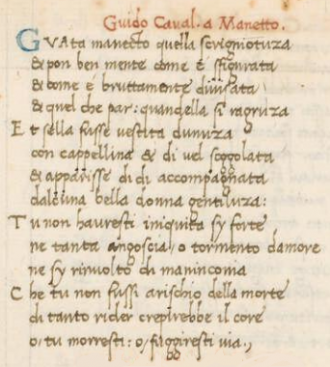 Guido Caual. a Manetto.
GVAta manecto quella scrigniotuza
& pon ben mente come è sfigurata
& come è bruttamente diuisata
& quel che par: quandella si ragruza
E t sella fusse uestita dunuza
con cappellina & di uel soggolata
& apparisse di di accompagnata
dalcuna bella donna gentiluza:
T u non hauresti iniquita sy forte
ne tanta angoscia/ o tormento damore
ne sy rinuolto di maninconia
C he tu non fussi arischio della morte
di tanto rider creprebbe il core
o/ tu morresti: o/ fuggiresti uia.,